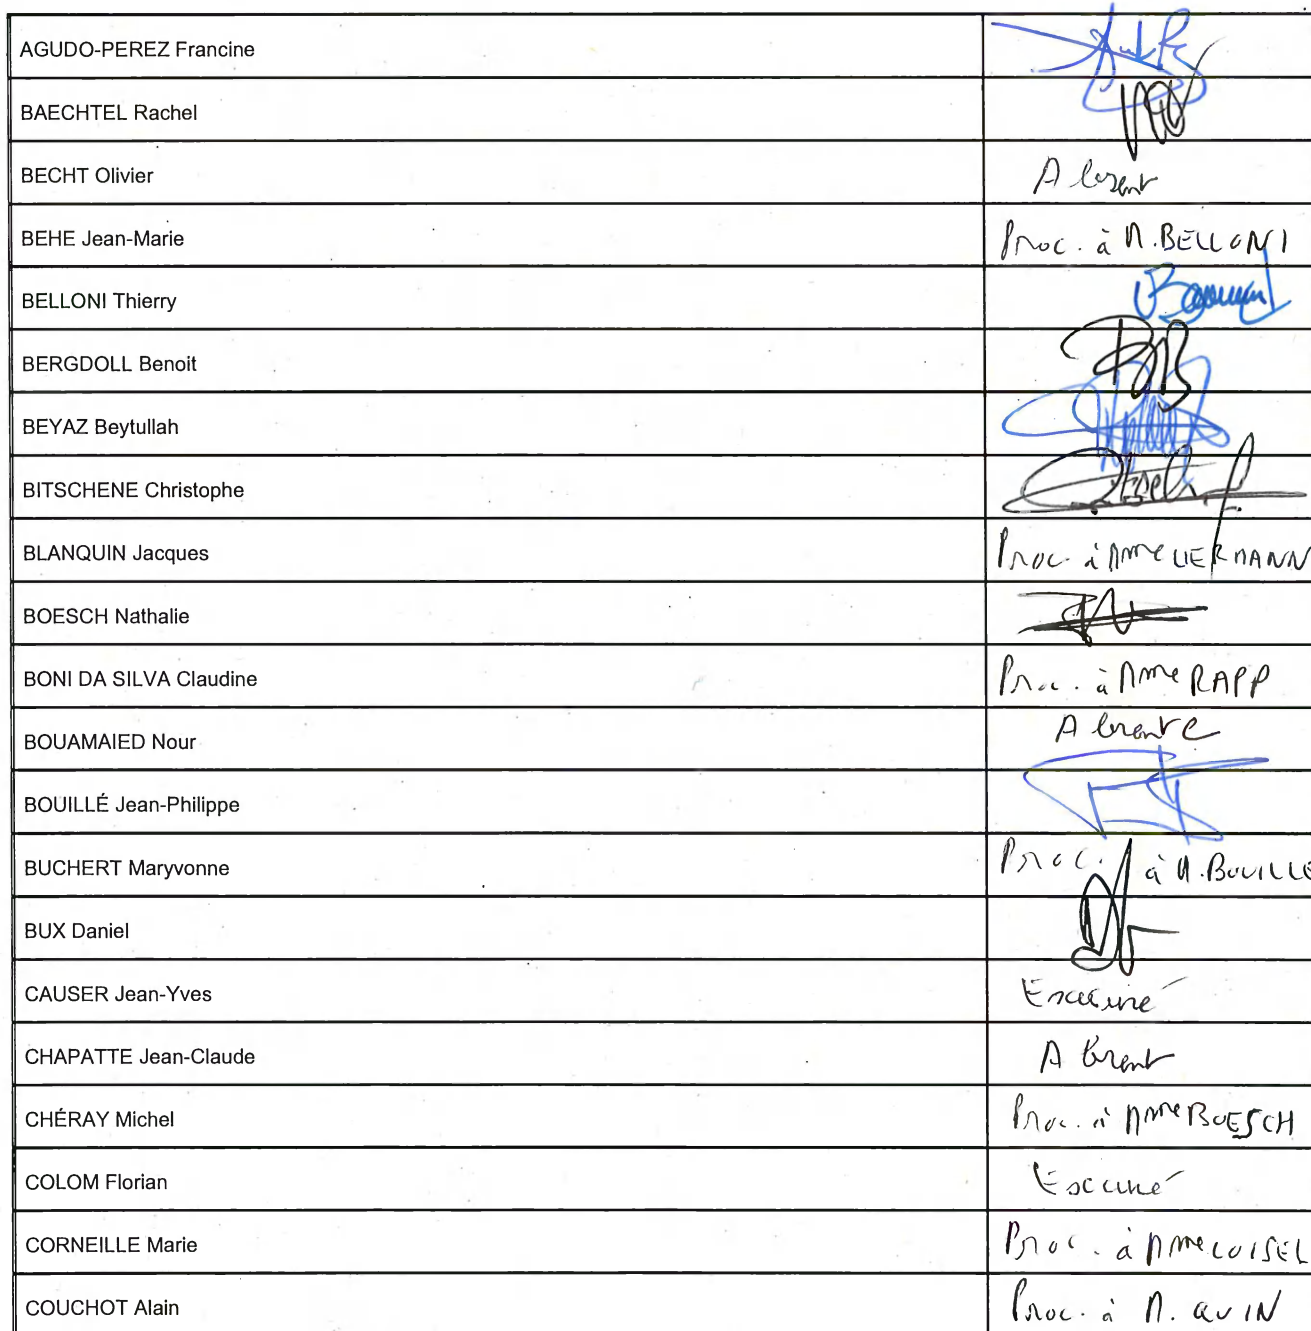 AGUDO-PEREZ Francine
BAECHTEL Rachel
BECHT Olivier Absent
BEHE Jean-Marie Proc. à M. BELLONI
BELLONI Thierry
BERGDOLL Benoit
BEYAZ Beytullah
BITSCHENE Christophe
BLANQUIN Jacques Proc à Mme
BOESCH Nathalie
BONI DA SILVA Claudine Proc. à Mme RAPP
BOUAMAIED Nour Absente
BOUILLÉ Jean-Philippe
BUCHERT Maryvonne Proc. à M. BOUILLE
BUX Daniel
CAUSER Jean-Yves Excusé
CHAPATTE Jean-Claude Absent
CHÉRAY Michel Proc. à Mme BOESCH
COLOM Florian Excusé
CORNEILLE Marie Proc. à Mme LOISEL
COUCHOT Alain Proc. à M. QUIN